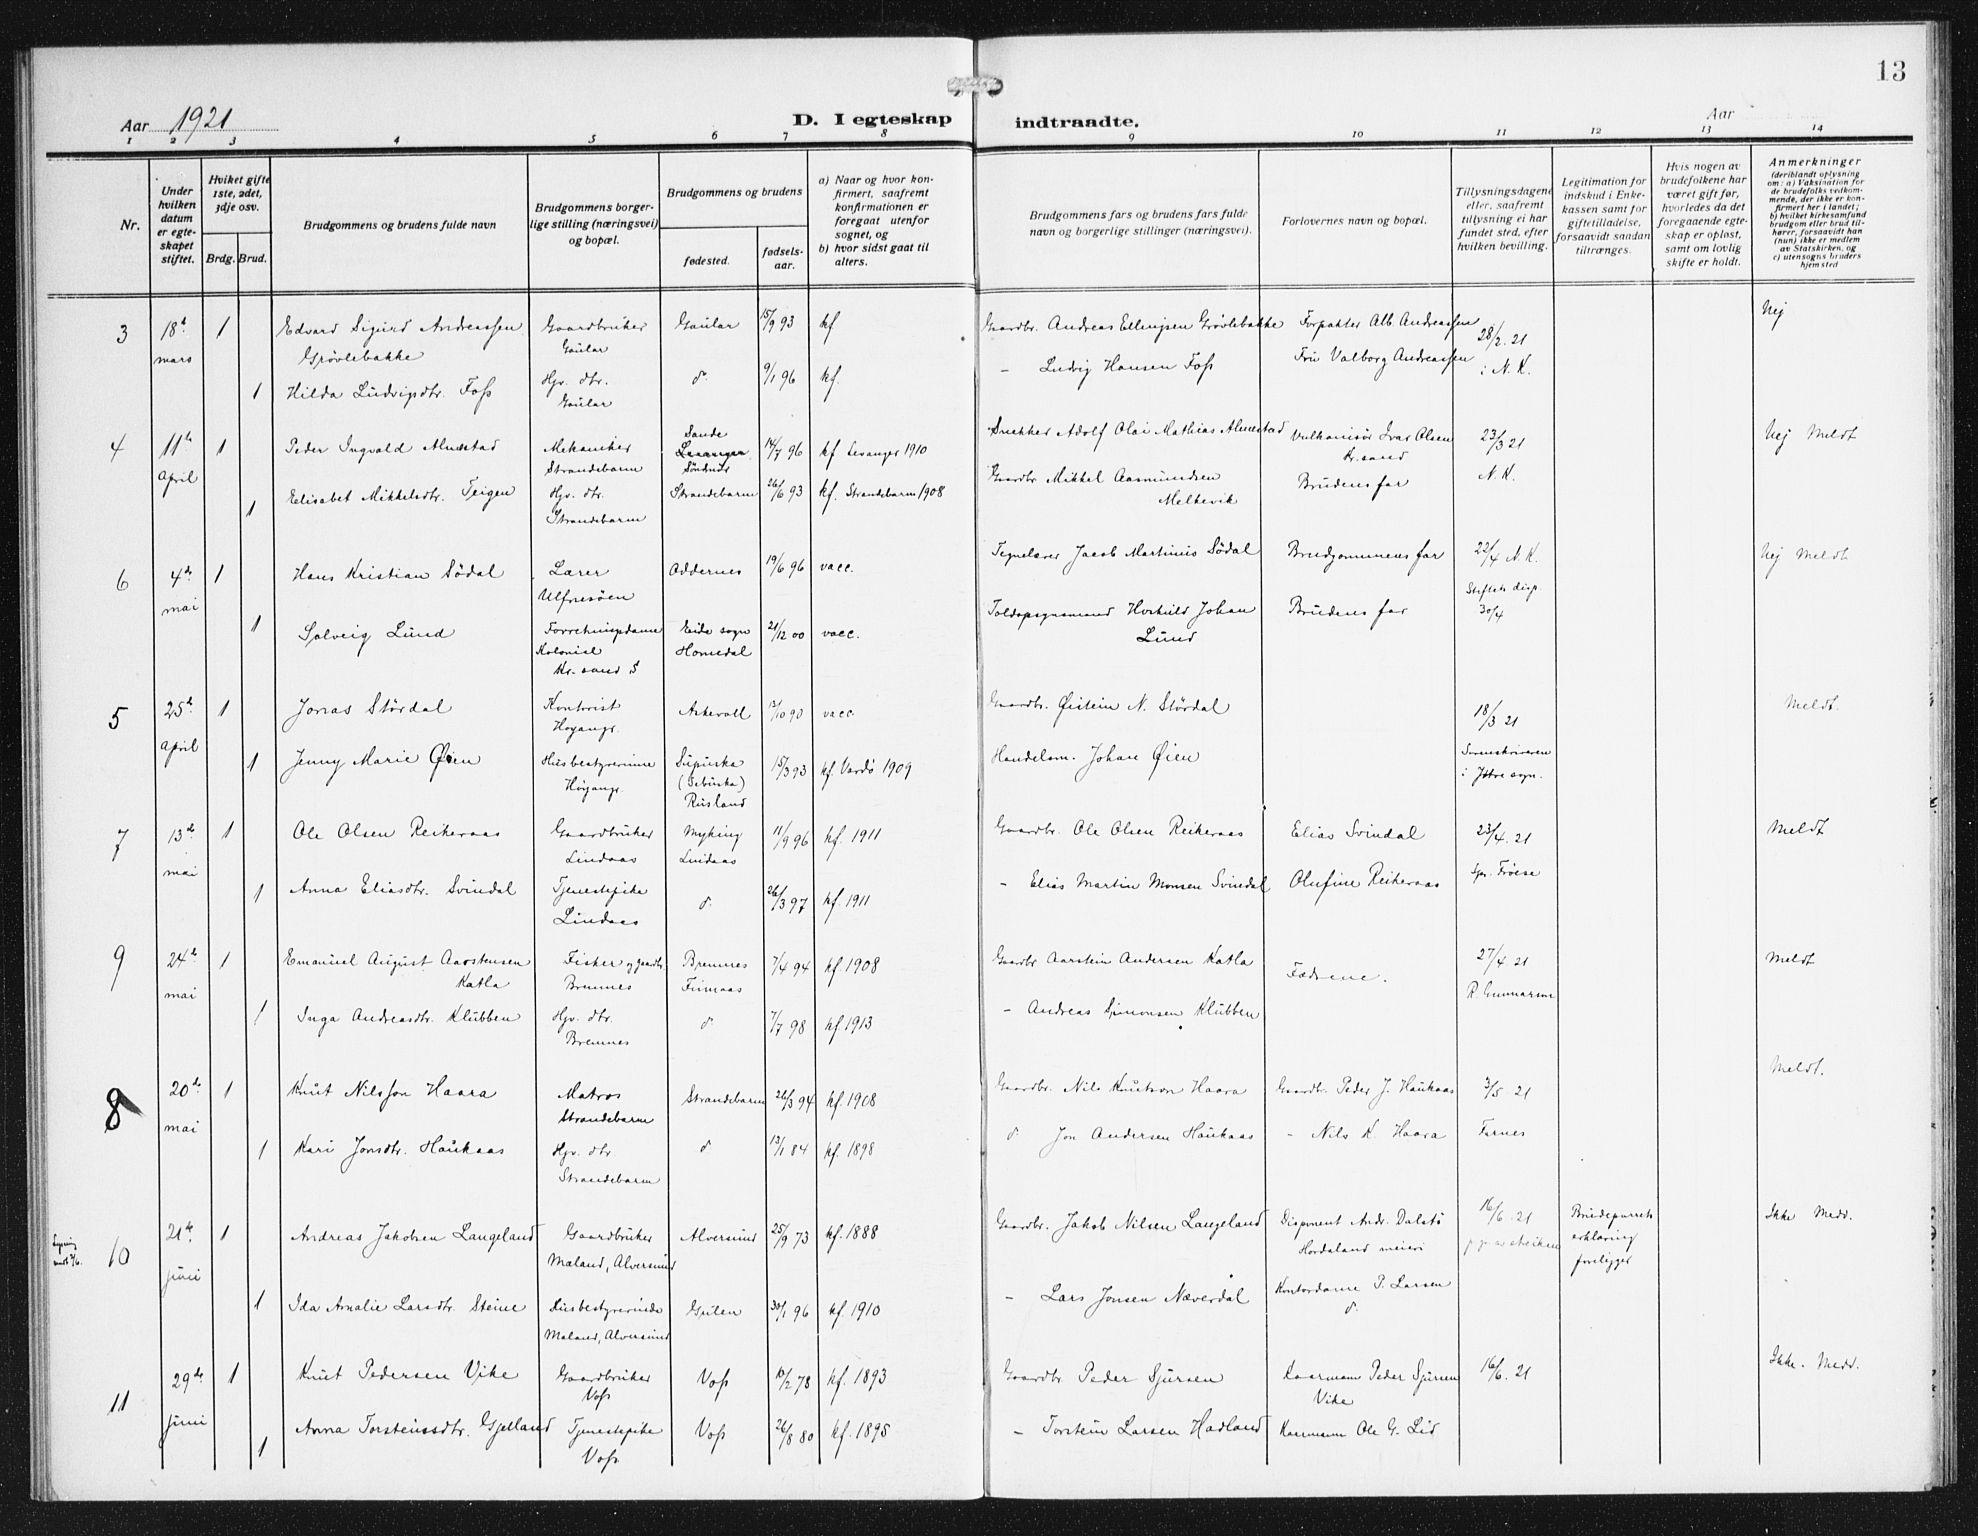 13
Aar 1921 D. I egteskap indtraadte. Aar
1 2 3 4 5 6 7 8 9 10 11 12 13 14
Nr.
Under hvilken datum er egteskapet stiftet.
Hviket gifte 1ste, 2det, 3dje osv.
Brdg. Brud.
Brudgommens og brudens fulde navn
Brudgommens borgerlige stilling (næringsvei) og bopæl.
Brudgommens og brudens
fødested.
fødselsaar.
a) Naar og hvor konfirmert, saafremt konfirmationen er foregaat utenfor sognet, og
b) hvor sidst gaat til alters.
Brudgommens fars og brudens fars fulde navn og borgerlige stillinger (næringsvei).
Forlovernes navn og bopæl.
Tillysningsdagene eller, saafremt tillysning ei har fundet sted, efter hvilken bevilling.
Legitimation for indskud i Enkekassen samt for giftetilladelse, forsaavidt saadan tiltrænges.
Hvis nogen av brudefolkene har været gift før, hvorledes da det foregaaende egteskap er opløst, samt om lovlig skifte er holdt.
Anmerkninger (deriblandt oplysning om: a) Vaksination for de brudefolks vedkommende, der ikke er konfirmert her i landet; b) hvilket kirkesamfund brudgom eller brud tilhører, forsaavidt han (hun) ikke er medlem av Statskirken, og c) utensogns bruders hjemsted
3 18de mars 1 Edvard Sigurd Andreassen Grøvlebakke Gaardbruker Gaular Gaular 15/9 93 kf Gaardbr. Andreas Ellingsen Grøvlebakke Forpakter Alb. Andreassen 28/2. 21 i N. K. Nej
1 Hilda Ludvigsdtr. Foss Hjv. dtr. Gaular d. 9/1 96 kf. – Ludvig Hansen Foss Fru Valborg Andreassen
4 11te April 1 Peder Ingvald Almestad Mekaniker Strandebarm Sande Søndmør 14/7 96 kf Levanger 1910 Snekker Adolf Olai Mathias Almestad Vulkanisør Ivar Olsen Kr.sand 23/3 21 N. K. Nej Meldt
1 Elisabet Mikkelsdtr. Teigen Hjv. dtr. Strandebarm Strandebarm 26/6 93 kf. Strandebarm 1908 Gaardbr. Mikkel Aasmundsen Melkevik Brudens far
6 4de mai 1 Hans Kristian Södal Lærer Ulfnesöen Oddernes 19/6 96 vacc. Tegnelærer Jacob Martinius Södal Brudgommens far 22/4 N. K. Stiftets disp. 30/4 Nej Meldt
1 Solveig Lund Forretningsdame Kolonial Kr. sand S Eide sogn Homedal 21/12 00 vacc. Toldopsynsmand Johan Lund Brudens far
5 25de April 1 Jonas Stördal Kontorist Höyangr. Askevoll 13/10 90 vacc. Gaardbr. Øistein N. Stördal 18/3 21 Sorenskriveren i Ytre sogn. Meldt.
1 Jenny Marie Øien Husbestyrerinne Höyangr. Rusland 15/3 93 kf. Vardö 1909 Handelsm. Johan Øien
7 13de mai 1 Ole Olsen Reikeraas Gaardbruker Lindaas Myking Lindaas 11/9 96 kf. 1911 Gaardbr. Ole Olsen Reikeraas Elias Svindal 23/4. 21 Spr. Fröise Meldt
1 Anna Eliasdtr. Svindal Tjenestepike Lindaas d. 26/3 97 kf. 1911 – Elias Martin Monsen Svindal Olufine Reikeraas
9 24de mai 1 Emanuel August Aarstensen Katla Fisker og gaardbr. Bremnes Bremnes Finnaas 7/4 94 kf. 1908 Gaardbr Aarstein Andersen Katla Fædrene. 27/4. 21 R. Gunnarson Meldt
1 Inga Andreasdtr. Klubben Hjv. dtr. Bremnes d. 7/7 98 kf 1913 – Andreas Simonsen Klubben
8 20de mai 1 Knut Nilsson Haara Matros Strandebarm Strandebarm 26/3 94 kf. 1908 Gaardbr. Nils Knutson Haara Gaardbr. Peder J. Haukaas 3/5 21 Farnes Meldt.
1 Kari Jonsdtr. Haukaas Hjv. dtr. Strandebarm d. 13/1 84 kf. 1898 d. Jon Andersen Haukaas – Nils K. Haara
10 21de juni 1 Andreas Jakobsen Langeland Gaardbruker Maland, Alversund Alversund 25/9 73 kf. 1888 Gaardbr. Jakob Nilsen Langeland Disponent Andr. Dalstö Hordaland meieri 16/6. 21 p. gr. av streiken Brudeparrets erklæring foreligger Ikke Medd.
1 Ida Amalie Larsdtr. Steine Husbestyrerinde Maland, Alversund Gulen 30/1 96 kf. 1910 – Lars Jonsen Næverdal Kontordame P. Larsen d.
11 29de juni 1 Knut Pedersen Vike Gaardbruker Voss Voss 10/2 78 kf. 1893 Gaardbr. Peder Sjursen Kaarmann Peder Sjursen Vike 16/6. 21 Ikke. Medd.
1 Anna Torsteinsdtr. Gjelland Tjenestepike Voss Voss 26/8 80 kf. 1895 – Torstein Larsen Hadland Kaarmann Ole G. Lid